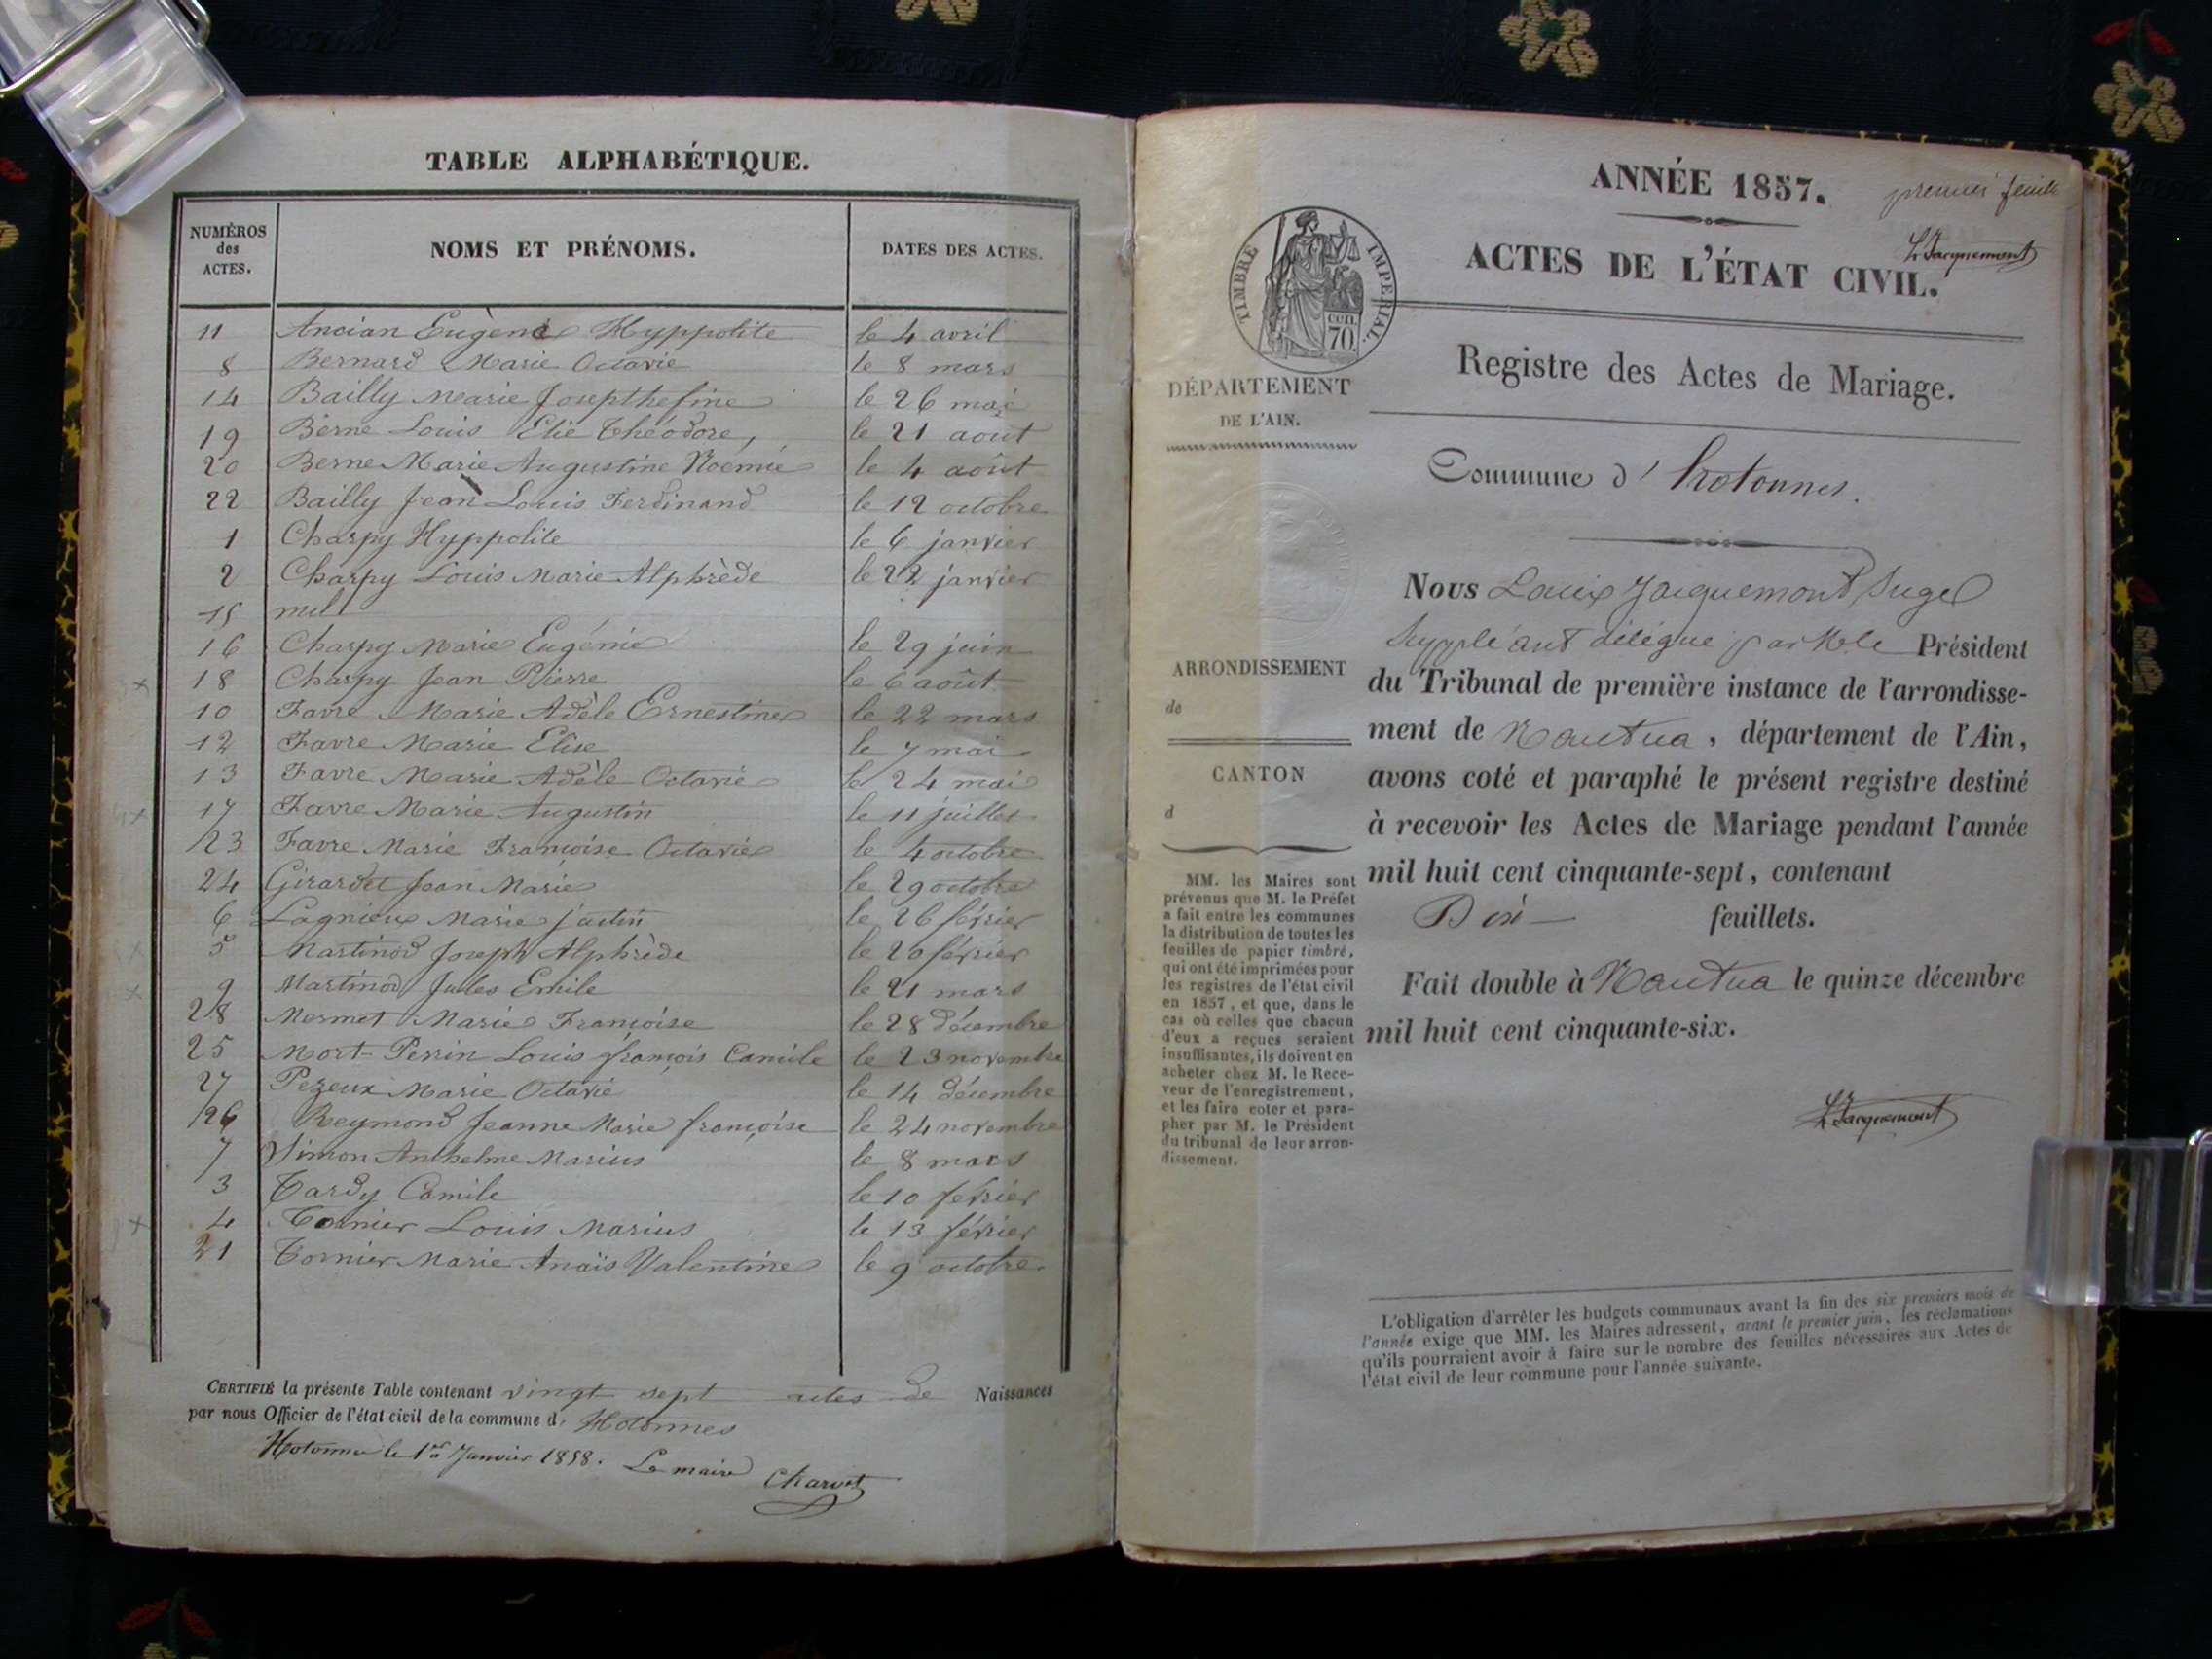 TABLE ALPHABÉTIQUE.
NUMÉROS des ACTES. NOMS ET PRÉNOMS. DATES DES ACTES.
11 Ancian Eugène Hyppolite le 4 avril
8 Bernard Marie Octavie le 8 mars
14 Bailly Marie Josepthefine le 26 mai
19 Berne Louis Elie Théodore, le 21 aout
20 Berne Marie Augustine Noémie le 4 août
22 Bailly Jean Louis Ferdinand le 12 octobre
1 Charpy Hyppolite le 6 janvier
2 Charpy Louis Marie Alphrède le 22 janvier
15 nul
16 Charpy Marie Eugénie le 29 juin
18 Charpy Jean Pierre le 6 août
10 Favre Marie Adèle Ernestine le 22 mars
12 Favre Marie Elise le 7 mai
13 Favre Marie Adèle Octavie le 24 mai
17 Favre Marie Augustin le 11 juillet
23 Favre Marie Françoise Octavie le 4 octobre
24 Girardet Jean Marie le 29 octobre
6 Lagnieux Marie justin le 26 février
5 Martinod Joseph Alphrède le 20 février
9 Martinod Jules Emile le 21 mars
28 Mermet Marie Françoise le 28 décembre
25 Mort-Perrin Louis françois Camile le 23 novembre
27 Pezeux Marie Octavie le 14 décembre
26 Reymond Jeanne Marie françoise le 24 novembre
7 Simon Anthelme Marius le 8 mars
3 Tardy Camile le 10 février
4 Tornier Louis Marius le 13 février
21 Tornier Marie Anaïs Valentine le 9 octobre
CERTIFIÉ la présente Table contenant vingt sept actes de Naissances
par nous Officier de l'état civil de la commune d' Hotonnes
Hotonnes le 1er Janvier 1858. Le maire Charvet
ANNÉE 1857.
premier feuille
L Jacquemont
ACTES DE L'ÉTAT CIVIL.
TIMBRE IMPERIAL.
CEN. 70.
Registre des Actes de Mariage.
DÉPARTEMENT
DE L'AIN.
Commune d' Hotonnes.
Nous Louis Jacquemont Juge
Suppléant délégué par Mr le Président
du Tribunal de première instance de l'arrondisse-
ment de Nantua, département de l'Ain,
avons coté et paraphé le présent registre destiné
à recevoir les Actes de Mariage pendant l'année
mil huit cent cinquante-sept, contenant
Dix feuillets.
Fait double à Nantua le quinze décembre
mil huit cent cinquante-six.
L Jacquemont
ARRONDISSEMENT
de
CANTON
d
MM. les Maires sont
prévenus que M. le Préfet
a fait entre les communes
la distribution de toutes les
feuilles de papier timbré,
qui ont été imprimées pour
les registres de l'état civil
en 1857, et que, dans le
cas où celles que chacun
d'eux a reçues seraient
insuffisantes, ils doivent en
acheter chez M. le Rece-
veur de l'enregistrement,
et les faire coter et para-
pher par M. le Président
du tribunal de leur arron-
dissement.
L'obligation d'arrêter les budgets communaux avant la fin des six premiers mois de
l'année exige que MM. les Maires adressent, avant le premier juin, les réclamations
qu'ils pourraient avoir à faire sur le nombre des feuilles nécessaires aux Actes de
l'état civil de leur commune pour l'année suivante.